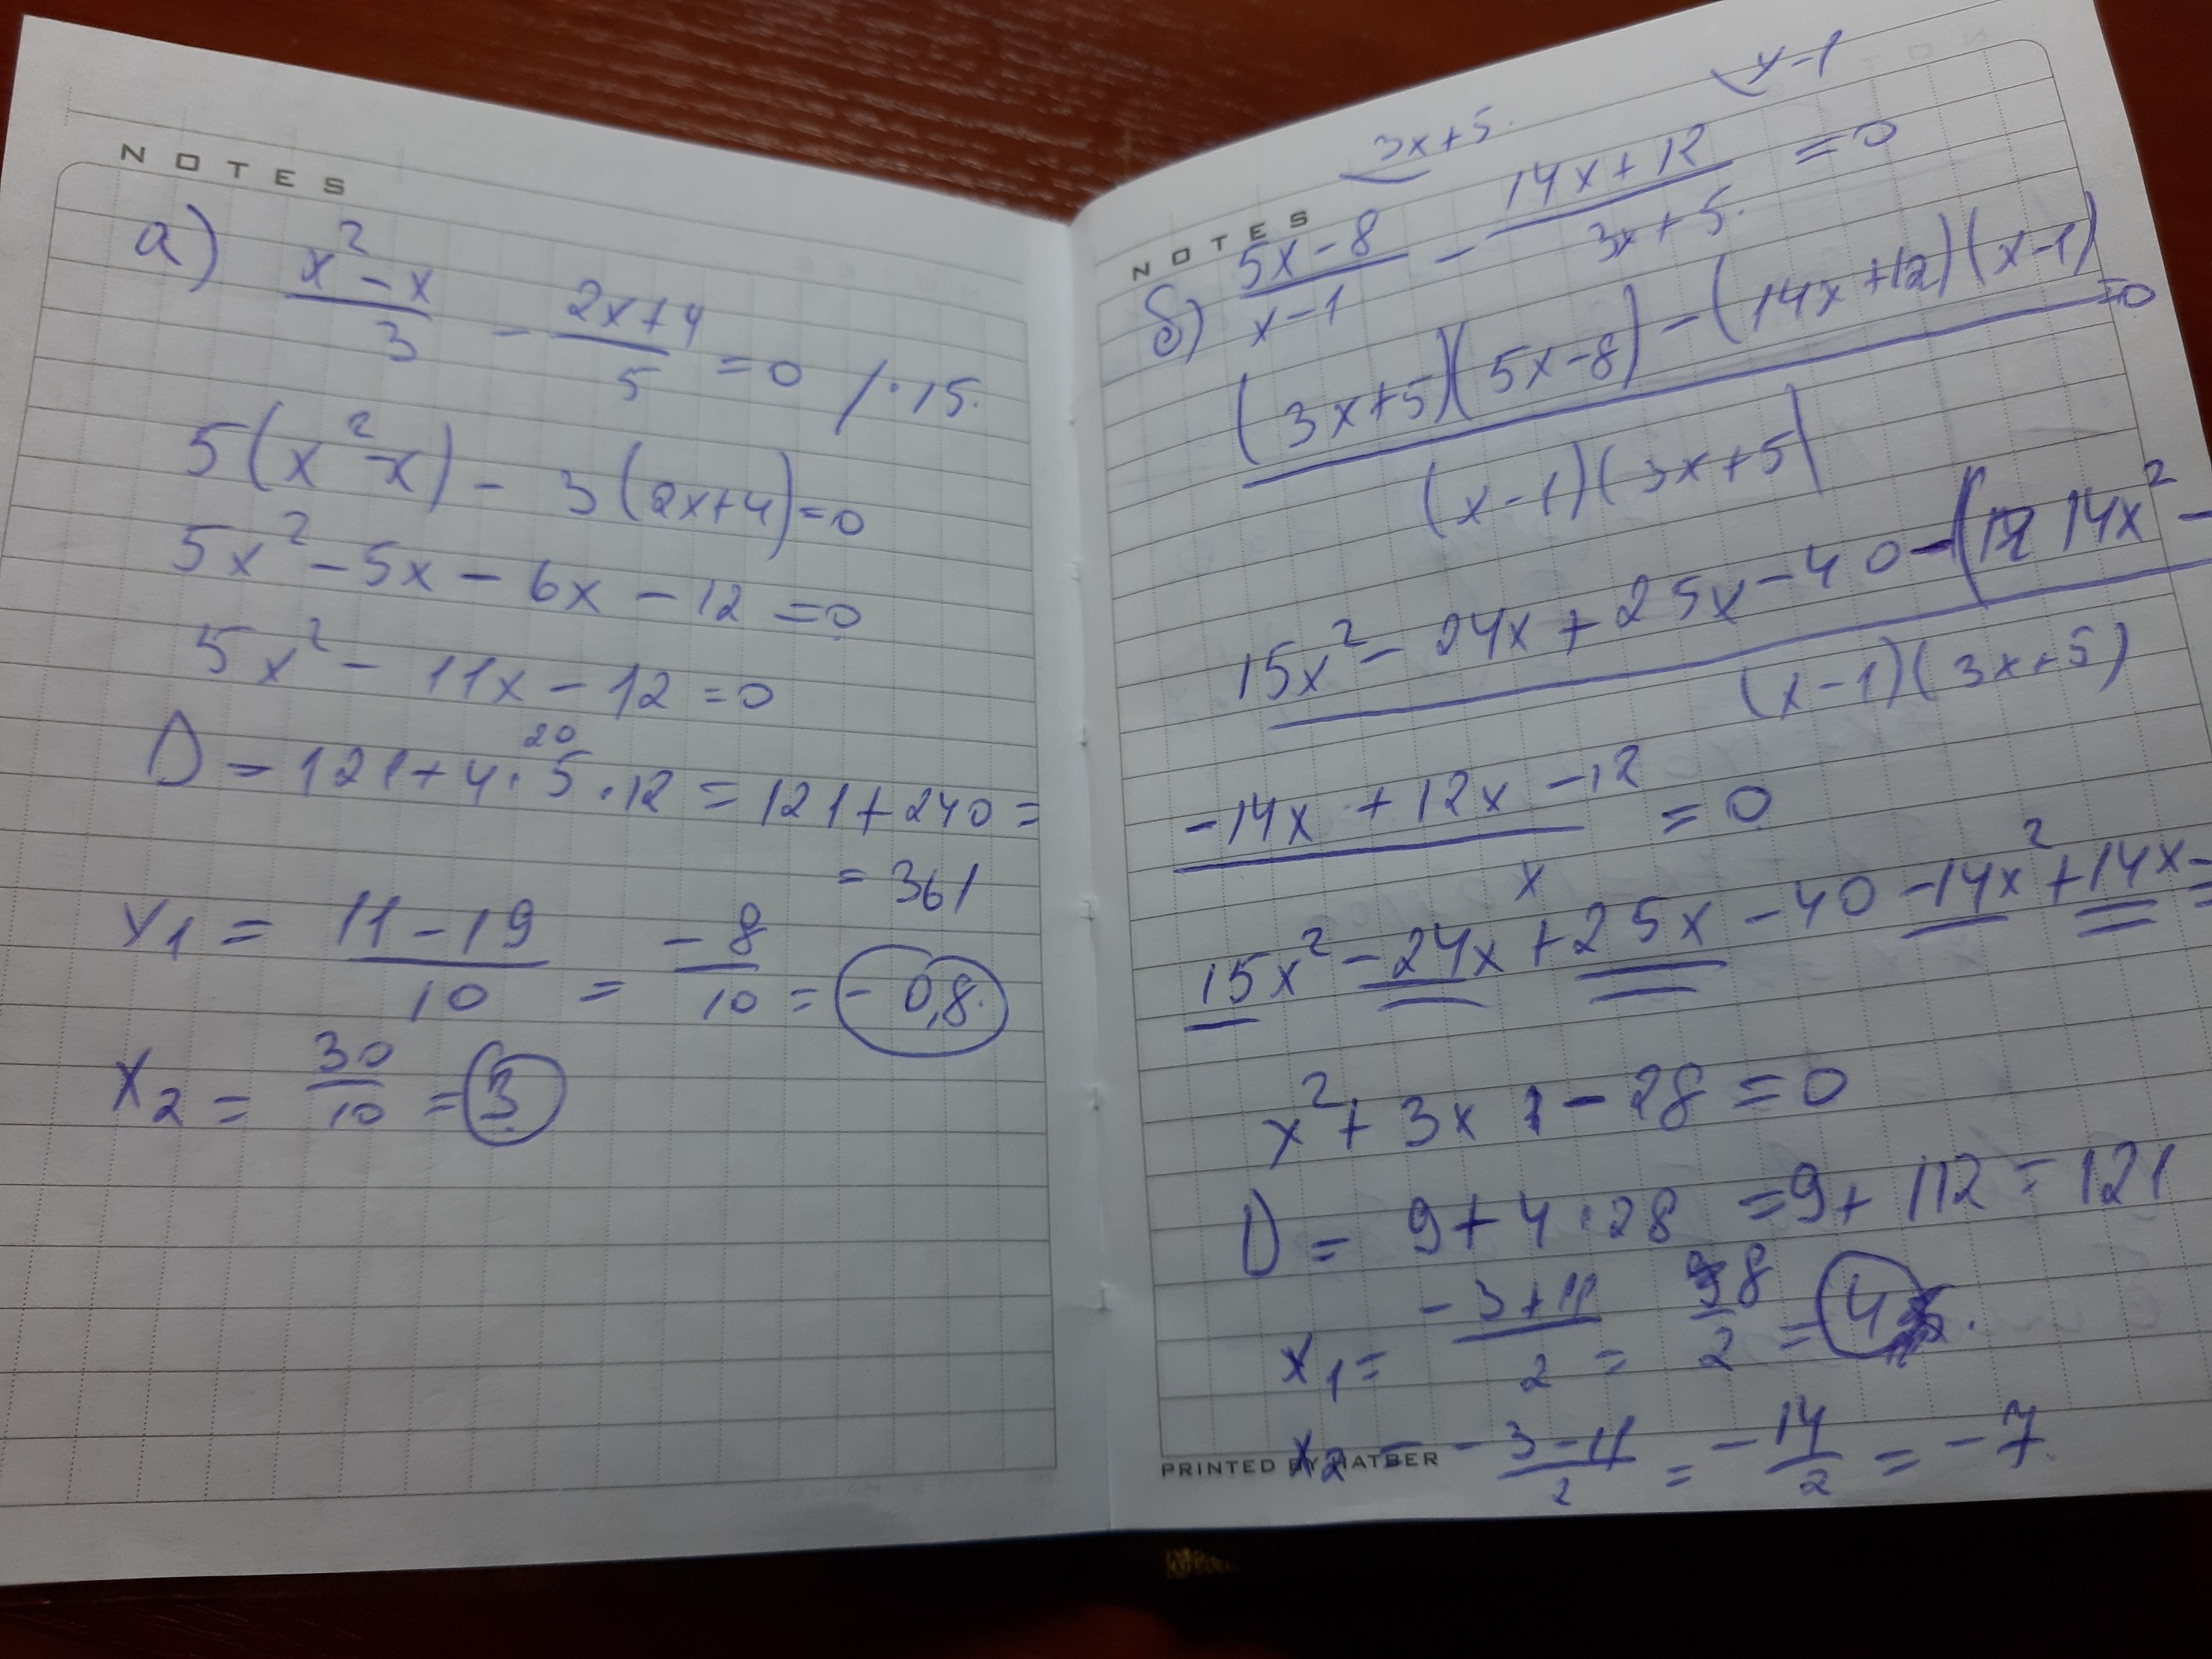 NOTES
а) (x² - x)/3 - (2x+4)/5 = 0 /·15.
5(x² - x) - 3(2x+4) = 0
5x² - 5x - 6x - 12 = 0
5x² - 11x - 12 = 0
20
D = 121 + 4·5·12 = 121 + 240 =
= 361
x₁ = (11 - 19)/10 = -8/10 = -0,8.
x₂ = 30/10 = 3
x-1
3x+5.
NOTES
б) (5x-8)/(x-1) - (14x+12)/(3x+5) = 0
((3x+5)(5x-8) - (14x+12)(x-1))/((x-1)(3x+5)) = 0
(15x² - 24x + 25x - 40 - (14x² -)/((x-1)(3x+5))
-14x + 12x - 12 = 0
x
15x² - 24x + 25x - 40 - 14x² + 14x -
x² + 3x - 28 = 0
D = 9 + 4·28 = 9 + 112 = 121
x₁ = (-3+11)/2 = 8/2 = 4.
x₂ = (-3-11)/2 = -14/2 = -7.
PRINTED BY HATBER